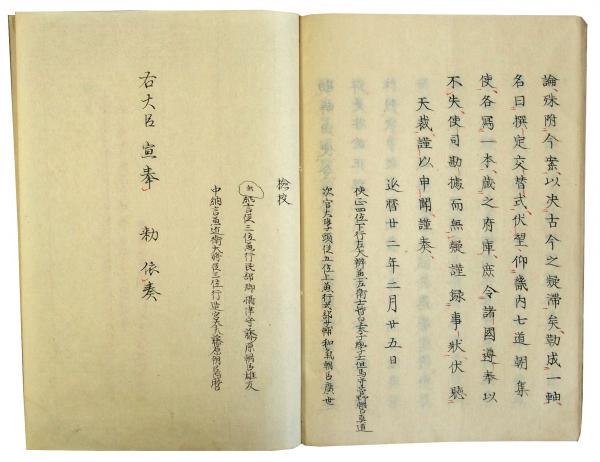 論殊附今案以决古今之疑滞矣勒成一軸
名曰撰定交替式伏望仰畿内七道朝集
使各寫一本藏之府庫庶令諸國遵奉以
不失使司勘據而無疑謹録事状伏聴
天裁謹以申聞謹奏
延曆廿二年二月廿五日
使正四位下行左大辨兼左衛士督皇太子學士但馬守菅野朝臣真道
次官大學頭從五位上兼行式部少輔和氣朝臣廣世
檢校
從三位兼行民部卿攝津守藤原朝臣雄友
中納言兼近衛大將從三位行造宮大夫藤原朝臣
右大臣宣奉 勅依奏